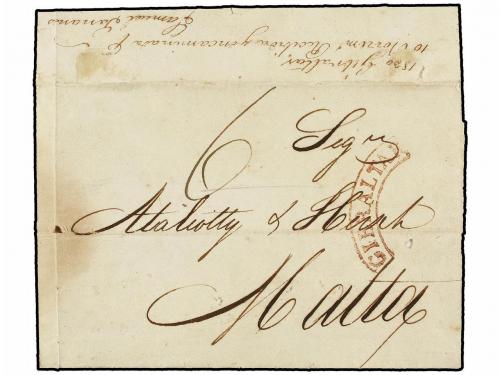 1830 Gibraltar
10 Novemr Recibida y encaminada pr
Samuel
6
Sigrs
Ataliotty & Hush
Malta
GIBRALTAR